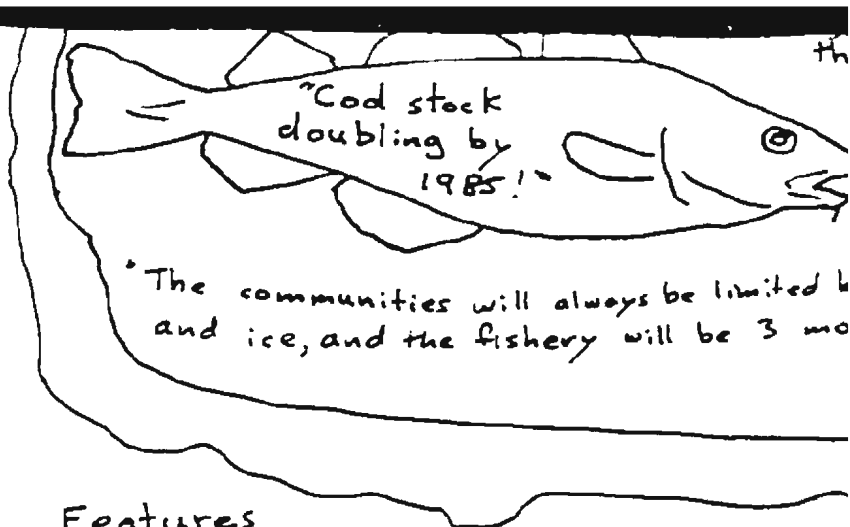 th
"Cod stock
doubling by
1985!"
"The communities will always be limited b
and ice, and the fishery will be 3 mo
Features